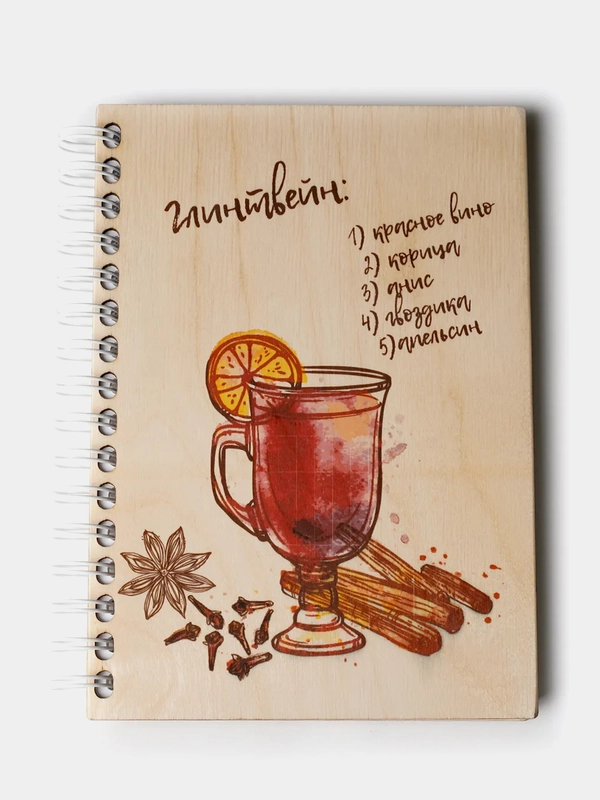 глинтвейн:
1) красное вино
2) корица
3) анис
4) гвоздика
5) апельсин